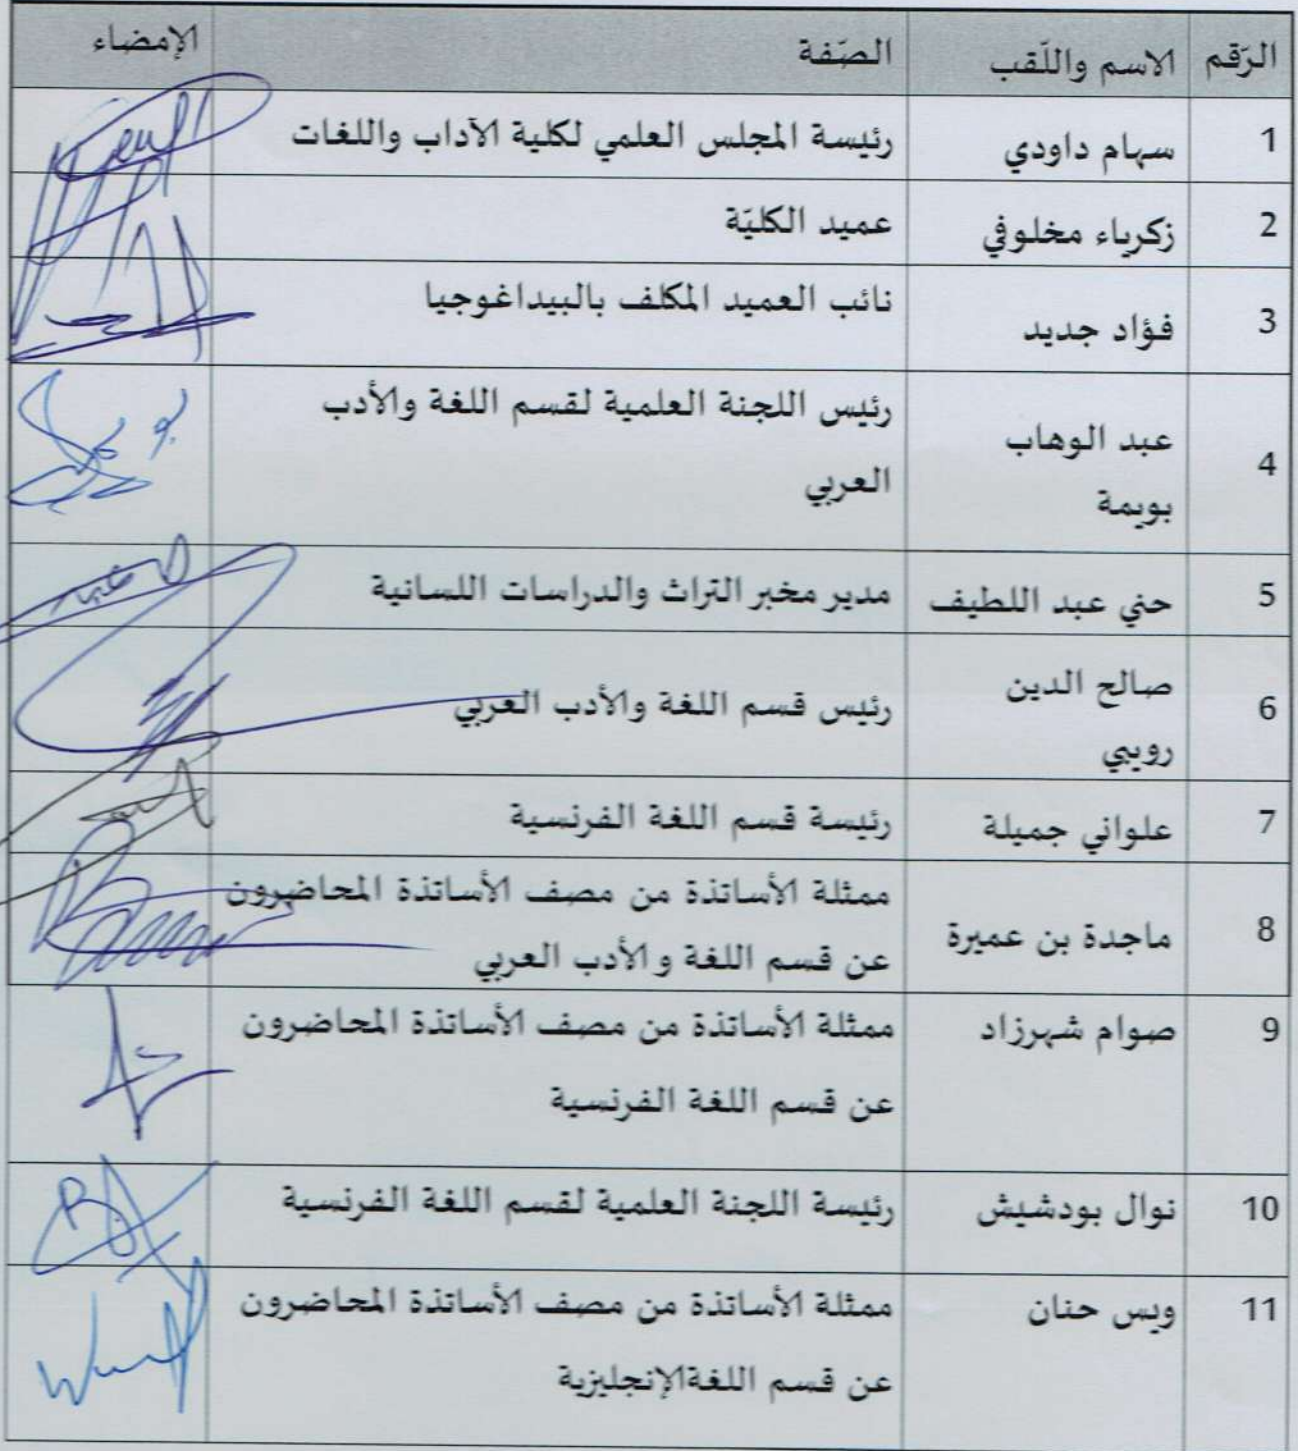 الرّقم الاسم واللّقب الصّفة الإمضاء
1 سهام داودي رئيسة المجلس العلمي لكلية الآداب واللغات
2 زكرياء مخلوفي عميد الكليّة
3 فؤاد جديد نائب العميد المكلف بالبيداغوجيا
4 عبد الوهاب رئيس اللجنة العلمية لقسم اللغة والأدب
بويمة العربي
5 حني عبد اللطيف مدير مخبر التراث والدراسات اللسانية
6 صالح الدين رئيس قسم اللغة والأدب العربي
روببي
7 علواني جميلة رئيسة قسم اللغة الفرنسية
8 ماجدة بن عميرة ممثلة الأساتذة من مصف الأساتذة المحاضرون
عن قسم اللغة والأدب العربي
9 صوام شهرزاد ممثلة الأساتذة من مصف الأساتذة المحاضرون
عن قسم اللغة الفرنسية
10 نوال بودشيش رئيسة اللجنة العلمية لقسم اللغة الفرنسية
11 ويس حنان ممثلة الأساتذة من مصف الأساتذة المحاضرون
عن قسم اللغةالإنجليزية